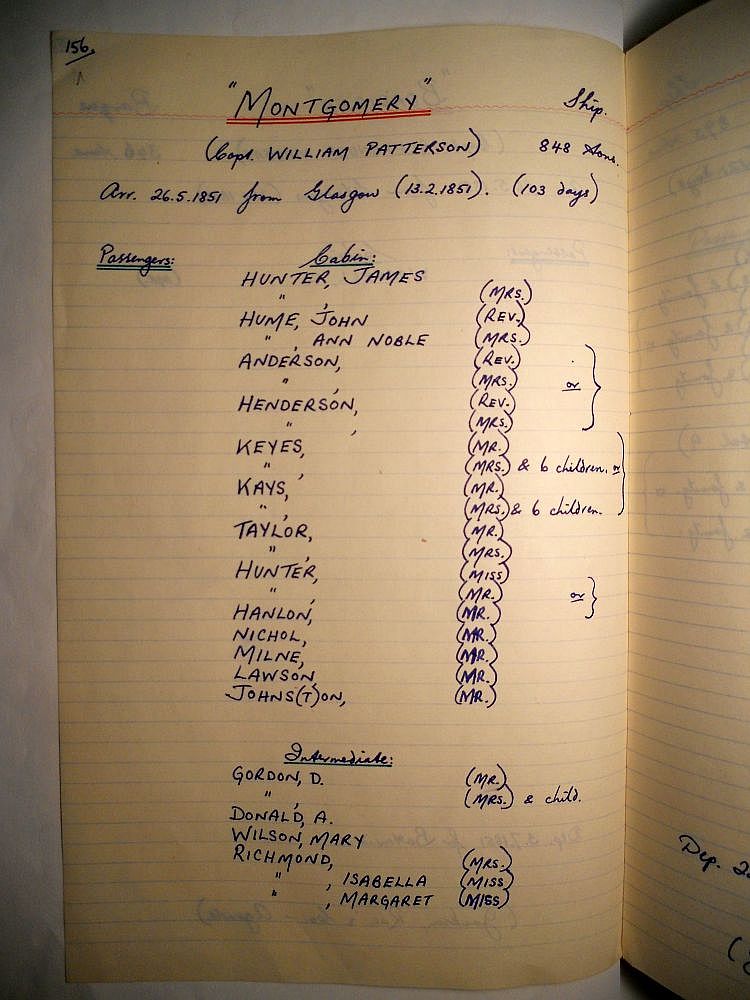 156.
"MONTGOMERY" Ship.
(Capt. WILLIAM PATTERSON) 848 tons.
Arr. 26.5.1851 from Glasgow (13.2.1851). (103 days)
Passengers: Cabin:
HUNTER, JAMES
" , (MRS.)
HUME, JOHN (REV.)
" , ANN NOBLE (MRS.)
ANDERSON, (REV.)
" , (MRS.) or
HENDERSON, (REV.)
" , (MRS.)
KEYES, (MR.)
" , (MRS.) & 6 children. or
KAYS, (MR.)
" , (MRS.) & 6 children.
TAYLOR, (MR.)
" , (MRS.)
HUNTER, (MISS)
" , (MR.) or
HANLON, (MR.)
NICHOL, (MR.)
MILNE, (MR.)
LAWSON, (MR.)
JOHNS(T)ON, (MR.)
Intermediate:
GORDON, D. (MR.)
" , (MRS.) & child.
DONALD, A.
WILSON, MARY
RICHMOND, (MRS.)
" , ISABELLA (MISS)
" , MARGARET (MISS)
Dep.